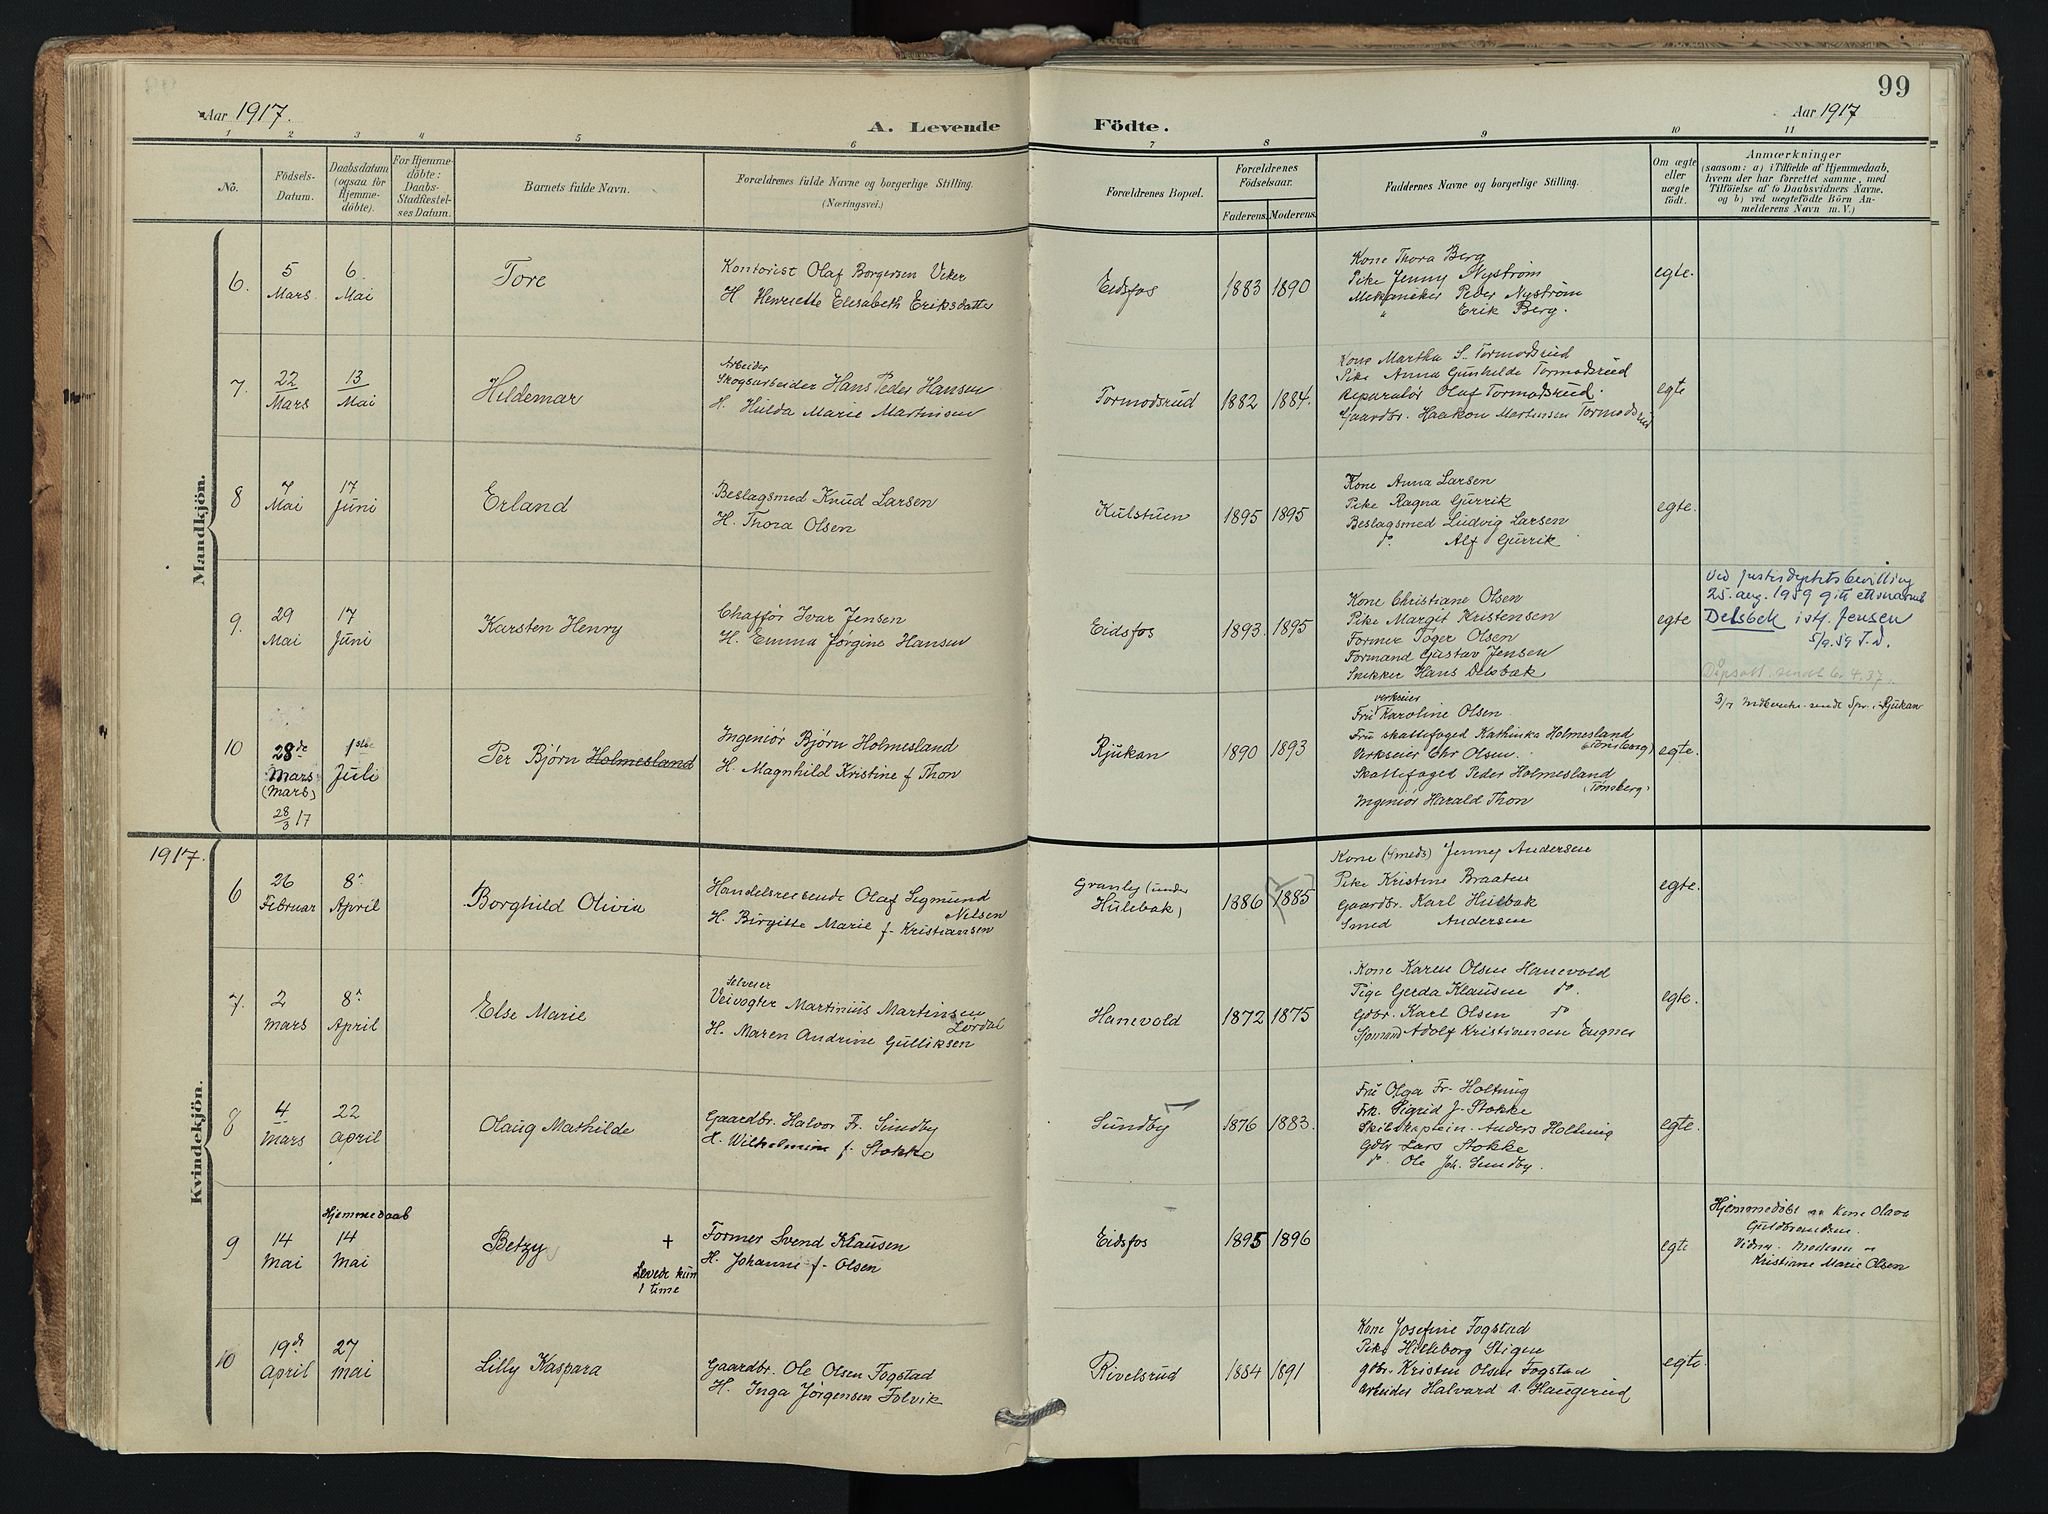 99
Aar 1917.
A. Levende
Födte.
Aar 1917
1 2 3 4 5 6 7 8 9 10 11
No.
Födsels-
Datum.
Daabsdatum
(ogsaa for
Hjemme-
döbte).
For Hjemme-
döbte:
Daabs-
Stadfæstel-
ses Datum.
Barnets fulde Navn.
Forældrenes fulde Navne og borgerlige Stilling.
(Næringsvei.)
Forældrenes Bopæl.
Forældrenes
Födselsaar.
Faderens. Moderens.
Faddernes Navne og borgerlige Stilling.
Om ægte
eller
uægte
födt.
Anmærkninger
(saasom: a) i Tilfælde af Hjemmedaab,
hvem der har forrettet samme, med
Tilföielse af to Daabsvidners Navne,
og b) ved uægtefödte Börn An-
melderens Navn m. V.)
Mandkjön.
6.
5
Mars.
6.
Mai
Tore
Kontorist Olaf Borgersen Viker
H. Henriette Elisabeth Eriksdatter
Eidsfos
1883 1890
Kone Thora Berg
Pike Jenny Nyström
Mekaniker Peder Nyström
" Erik Berg.
egte.
7.
22
Mars
13
Mai
Hildemar
Arbeider
Skogsarbeider Hans Peder Hansen
H. Hulda Marie Martinsen
Tormodsrud
1882 1884.
Kone Martha S. Tormodsrud
Pike Anna Gunhilde Tormodsrud
Reparatör Olaf Tormodsrud.
Gaardbr. Haakon Martinsen Tormodsrud
egte
8
7
Mai
17
Juni
Erland
Beslagsmed Knud Larsen
H. Thora Olsen
Kulstuen
1895 1895
Kone Anna Larsen
Pike Ragna Gurrik
Beslagsmed Ludvig Larsen
do. Alf Gurrik
egte.
9.
29
Mai
17
Juni
Karsten Henry
Chafför Ivar Jensen
H. Emma Jørgine Hansen
Eidsfos
1893. 1895
Kone Christiane Olsen
Pike Margit Kristensen
Former Tøger Olsen
Formand Gustav Jensen
Snekker Hans Delsbæk
egte
Ved justisdeptets bevilling
25. aug. 1959 gitt ettersnavnet
Delsbek istf. Jensen
5/9.59 T.D.
Dåpsatt. sendt 6. 4. 37.
10
28de
Mars
(Mars)
28/3 17
1ste
Juli
Per Björn Holmesland
Ingeniör Björn Holmesland
H. Magnhild Kristine f Thon
Rjukan
1890 1893
verkseier
Fru Karoline Olsen.
Fru skattefoged Kathinka Holmesland
(Tönsberg)
Verkseier Chr Olsen.
Skattefoged Peder Holmesland
(Tönsberg)
Ingeniör Harald Thon
egte.
3/7 Indberetn. sendt Spr. i Rjukan
1917.
Kvindekjön.
6
26
Februar
8.
April
Borghild Olivia
Handelsreisende Olaf Sigmund
Nilsen
H. Birgitte Marie f. Kristiansen
Granly (under
Hulebak)
1886 1885
Kone (Smeds) Jenny Andersen
Pike Kristine Braaten
Gaardbr. Karl Hulbak
Smed Andersen
egte.
7.
2
Mars
8.
April
Else Marie
Selveier
Veivogter Martinius Martinsen
Lørdal
H. Maren Andrine Gulliksen
Hanevold
1872 1875
Kone Karen Olsen Hanevold
Pige Gerda Klausen do.
Gdbr. Karl Olsen do
Sjömand Adolf Kristiansen Eugnes
egte.
8
4
Mars
22
April
Olaug Mathilde
Gaardbr. Halvor Fr. Sundby
H. Wilhelmine f. Stokke
Sundby
1876 1883.
Fru Olga Fr. Holtung
Frk. Sigrid J. Stokke
Skibskaptein. Anders Holtung
Gdbr Lars Stokke
do. Ole Joh. Sundby.
egte.
9
14
Mai
Hjemmedaab
14
Mai
Betzy
+
Levede kun
1 time
Former Svend Klausen
H. Johanne f. Olsen
Eidsfos
1895 1896
egte
Hjemmedöbt av Kone Olava
Guldbrandsen.
Vidner. Moderen og
Kristiane Marie Olsen
10
19de
April
27
Mai
Lilly Kaspara
Gaardbr. Ole Olsen Fogstad
H. Inga Jørgensen Folvik
Rivelsrud
1884 1891
Kone Josefine Fogstad
Pike Hilleborg Stigen
Gdbr. Kristen Olsen Fogstad
Arbeider Halvard A. Haugerud
egte.